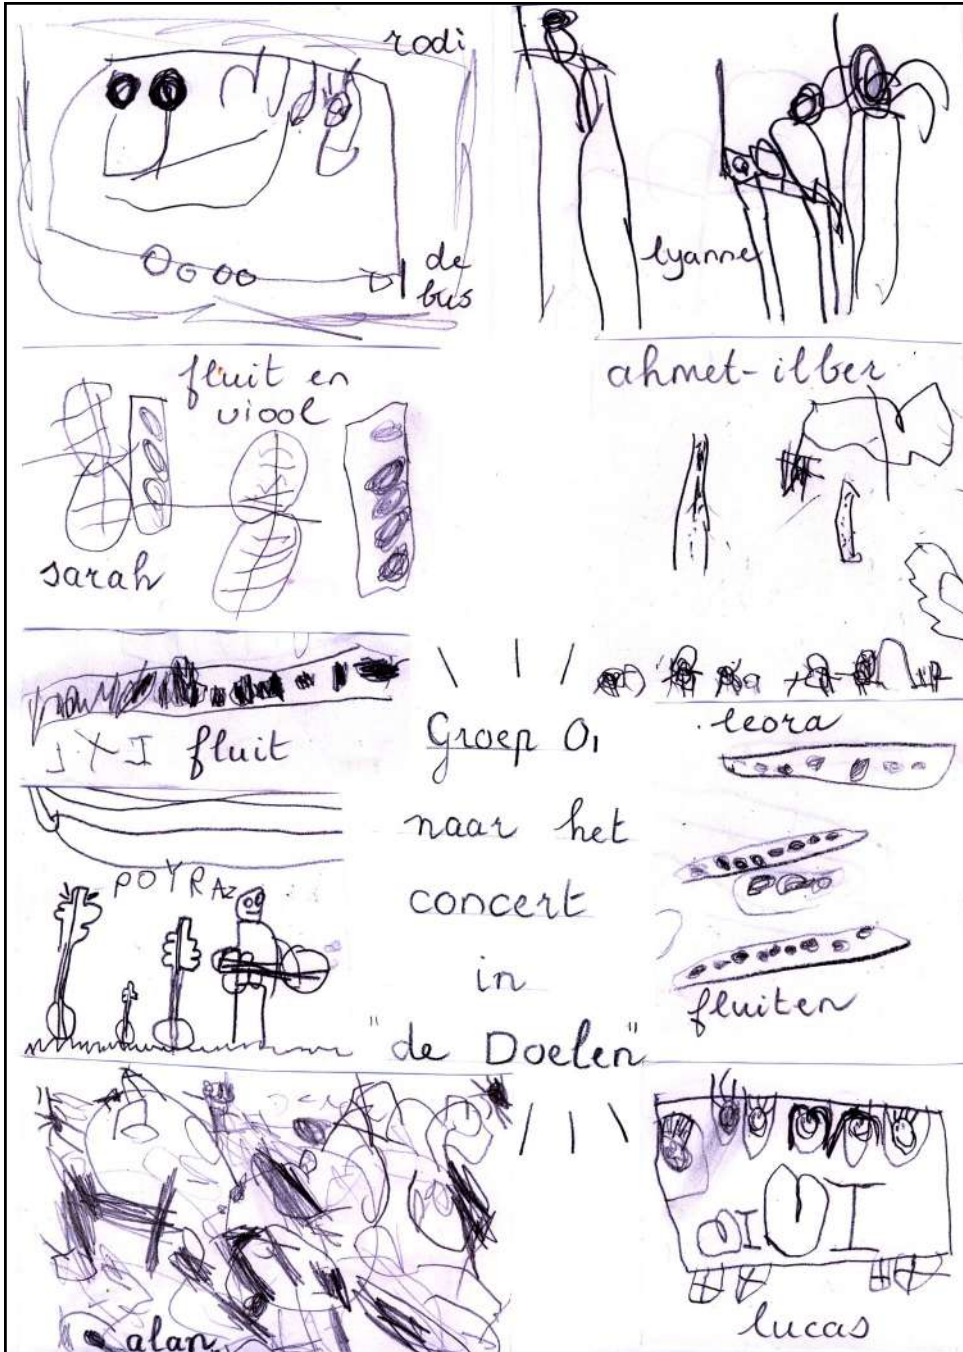 rodi
de
bus
lyanne
fluit en
viool
sarah
ahmet-ilber
fluit
Groep 0,
naar het
concert
in
"de Doelen"
leora
fluiten
POYRAZ
alan
lucas